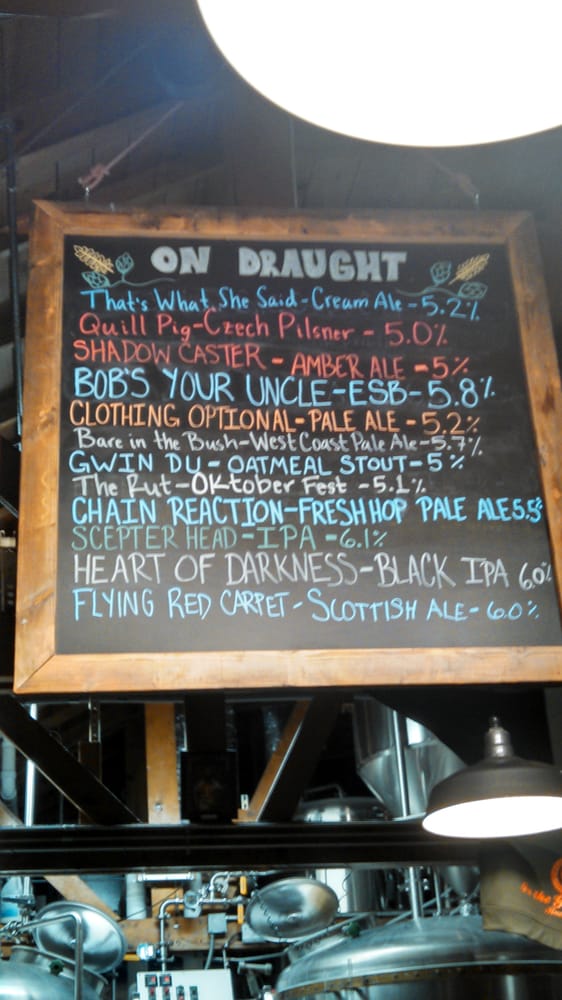 ON DRAUGHT
That's What She Said-Cream Ale-5.2%
Quill Pig-Czech Pilsner-5.0%
SHADOW CASTER-AMBER ALE-5%
BOB'S YOUR UNCLE-ESB-5.8%
CLOTHING OPTIONAL-PALE ALE-5.2%
Bare in the Bush-West Coast Pale Ale-5.7%
GWIN DU-OATMEAL STOUT-5%
The Rut-Oktober Fest-5.1%
CHAIN REACTION-FRESH HOP PALE ALE 5.5%
SCEPTER HEAD-IPA-6.1%
HEART OF DARKNESS-BLACK IPA 6.0%
FLYING RED CARPET-SCOTTISH ALE-6.0%